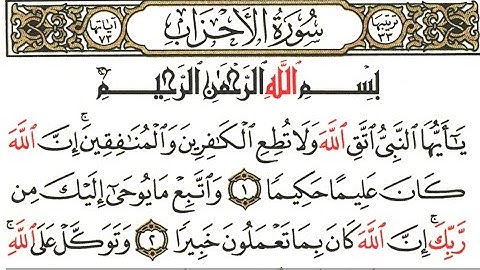 ترتيبها ٣٣ سُورَةُ الأَحْزَابِ آياتها ٧٣
بِسْمِ ٱللَّهِ ٱلرَّحْمَٰنِ ٱلرَّحِيمِ
يَٰٓأَيُّهَا ٱلنَّبِيُّ ٱتَّقِ ٱللَّهَ وَلَا تُطِعِ ٱلْكَٰفِرِينَ وَٱلْمُنَٰفِقِينَ ۚ إِنَّ ٱللَّهَ
كَانَ عَلِيمًا حَكِيمًا ١ وَٱتَّبِعْ مَا يُوحَىٰٓ إِلَيْكَ مِن
رَّبِّكَ ۚ إِنَّ ٱللَّهَ كَانَ بِمَا تَعْمَلُونَ خَبِيرًا ٢ وَتَوَكَّلْ عَلَى ٱللَّهِ ۚ